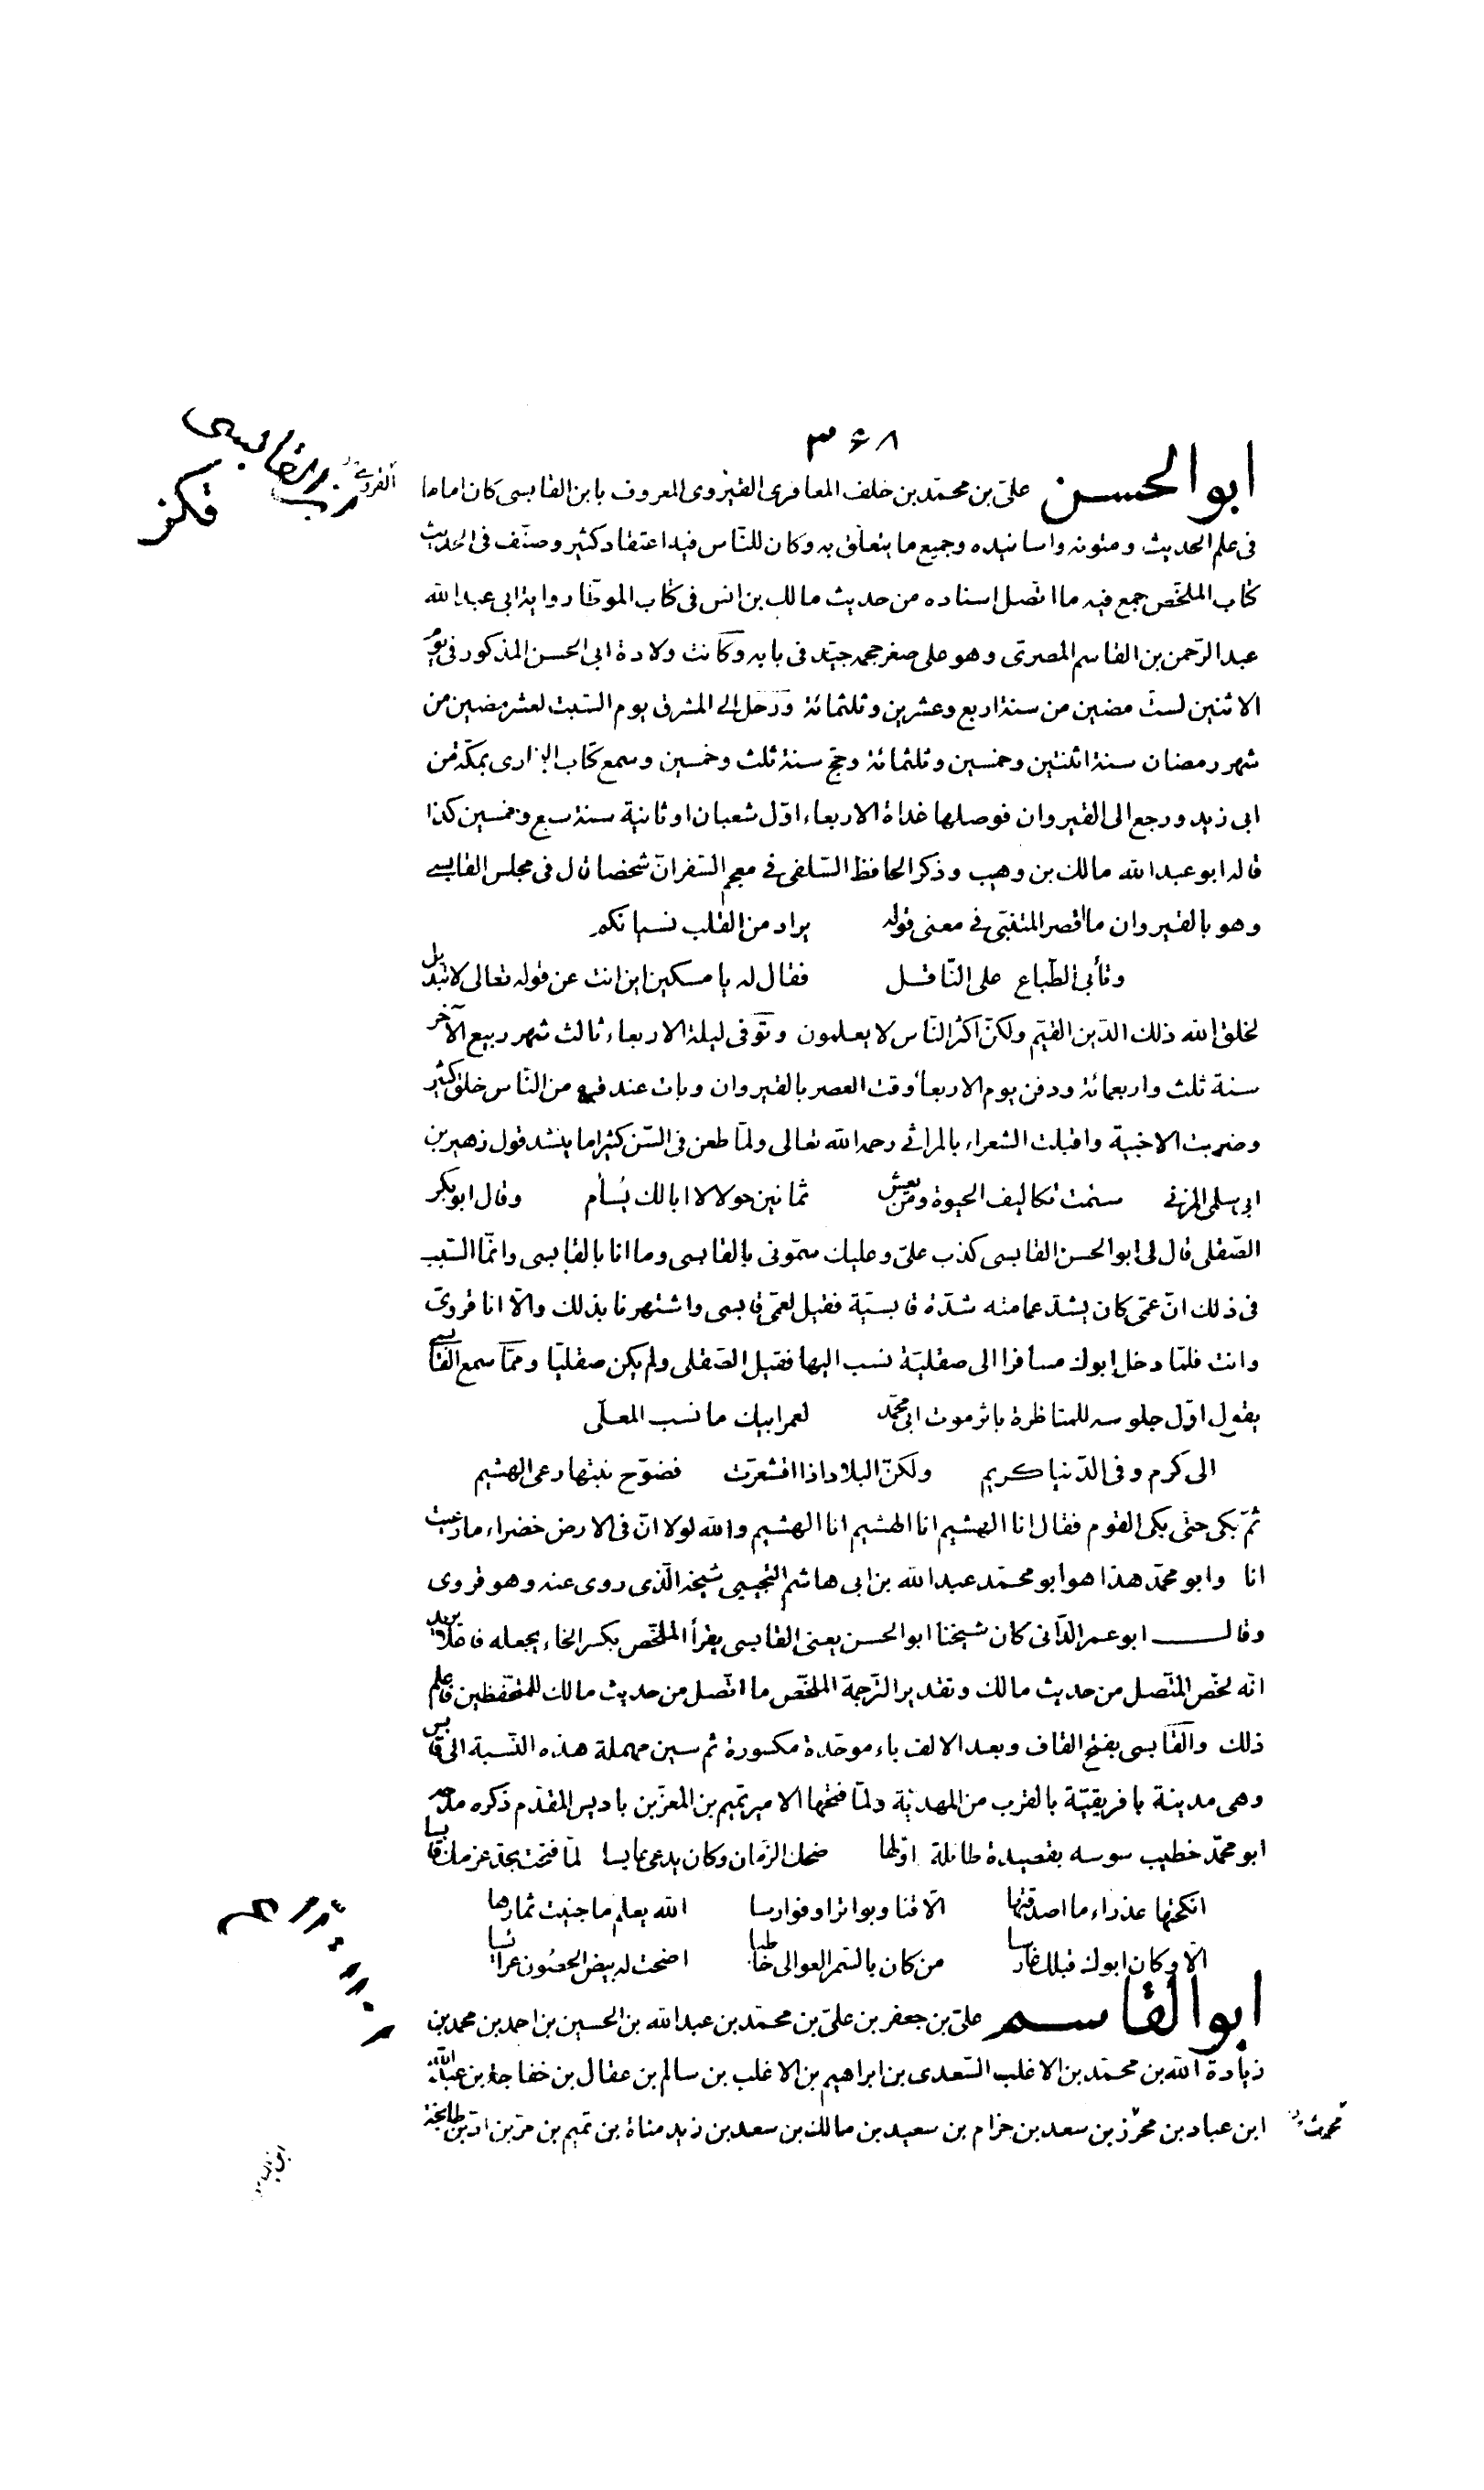 ۳۶۸
ابو الحسن علىّ بن محمّد بن خلف المعافرى القيروى المعروف بابن القابسى كان اماما
فى علم الحديث ومتونه واسانيده وجميع ما يتعلّق به وكان للنّاس فيه اعتقاد كثير وصنّف فى الحديث
كتاب الملخّص جمع فيه ما اتّصل اسناده من حديث مالك بن انس فى كتاب الموطّا رواية ابى عبد الله
عبد الرّحمن بن القاسم المصرىّ وهو على صغر حجمه جيّد فى بابه وكانت ولادة ابى الحسن المذكور فى يوم
الاثنين لستّ مضين من سنة اربع وعشرين وثلثمائة ورحل الى المشرق يوم السّبت لعشر مضين من
شهر رمضان سنة اثنتين وخمسين وثلثمائة وحجّ سنة ثلث وخمسين وسمع كتاب البخارى بمكّة من
ابى زيد ورجع الى القيروان فوصلها غداة الاربعاء اوّل شعبان او ثانية سنة سبع وخمسين كذا
قاله ابو عبد الله مالك بن وهيب وذكر الحافظ السّلفى فى معجم السّفر انّ شخصا قال فى مجلس القابسى
وهو بالقيروان ما اقصر المتنبّى فى معنى قوله يراد من القلب نسيانكم
وتأبى الطّباع على النّاقل فقال له يا مسكين اين انت عن قوله تعالى لا تبديل
لخلق الله ذلك الدّين القيّم ولكنّ اكثر النّاس لا يعلمون وتوّفى ليلة الاربعاء ثالث شهر ربيع الآخر
سنة ثلث واربعمائة ودفن يوم الاربعاء وقت العصر بالقيروان وبات عند قبره من النّاس خلق كثير
وضربت الاخبية واقبلت الشعراء بالمراثى رحمه الله تعالى ولمّا طعن فى السّن كثيرا ما ينشد قول زهير بن
ابى سلمى المزنى سئمت تكاليف الحيوة ومن يعش ثمانين حولا لا ابالك يسأم وقال ابو بكر
الصّقلى قال لى ابو الحسن القابسى كذب علىّ وعليك سمّونى بالقابسى وما انا بالقابسى وانّما السّبب
فى ذلك انّ عمّى كان يشدّ عمامته شدّة قابسيّة فقيل لعمّى قابسى واشتهرنا بذلك والّا انا قروىّ
وانت فلمّا دخل ابوك مسافرا الى صقليّة نسب اليها فقيل الصّقلى ولم يكن صقليّا وممّا سمع القابسى
يقول اوّل جلوسه للمناظرة باثر موت ابى محمّد لعمر ابيك ما نسب المعلّى
الى كرم وفى الدّنيا كريم ولكنّ البلاد اذا اقشعرّت فضوّح نبتها رعى الهشيم
ثمّ بكى حتى بكى القوم فقال انا الهشيم انا الهشيم انا الهشيم والله لولا انّ فى الارض خضراء ما رعيت
انا وابو محمّد هذا هو ابو محمّد عبد الله بن ابى هاشم التجيبى شيخه الّذى روى عنه وهو قروى
وقال ابو عمر الدّانى كان شيخنا ابو الحسن يعنى القابسى يقرأ الملخّص بكسر الخاء يجعله فاعلا يريد
انّه لخّص المتّصل من حديث مالك وتقدير التّرجمة الملخّص ما اتّصل من حديث مالك للمتحفّظين فاعلم
ذلك والقابسى بفتح القاف وبعد الالف باء موحّدة مكسورة ثم سين مهملة هذه النّسبة الى قابس
وهى مدينة بافريقيّة بالقرب من المهديّة ولمّا فتحها الامير تميم بن المعزّ بن باديس المقدّم ذكره مدحه
ابو محمّد خطيب سوسه بقصيدة طائلة اوّلها ضحك الزّمان وكان يدعى عابسا لمّا فتحت بحدّ عزمك قابسا
انكحتها عذراء ما اصدقتها الّا قنا وبواترا وفوارسا الله يعلم ما جنيت ثمارها
الّا وكان ابوك قبلك غارسا من كان بالسّمر العوالى خاطبا اضحت له بيض الحصون عرائسا
ابو القاسم علىّ بن جعفر بن علىّ بن محمّد بن عبد الله بن الحسين بن احمد بن محمد بن
زيادة الله بن محمّد بن الاغلب السّعدى بن ابراهيم بن الاغلب بن سالم بن عقال بن خفاجة بن عبد الله
ابن عباد بن محرّز بن سعد بن حزام بن سعيد بن مالك بن سعد بن زيد مناة بن تميم بن مرّ بن ادّ بن طابخة
القروىّ
القابسى